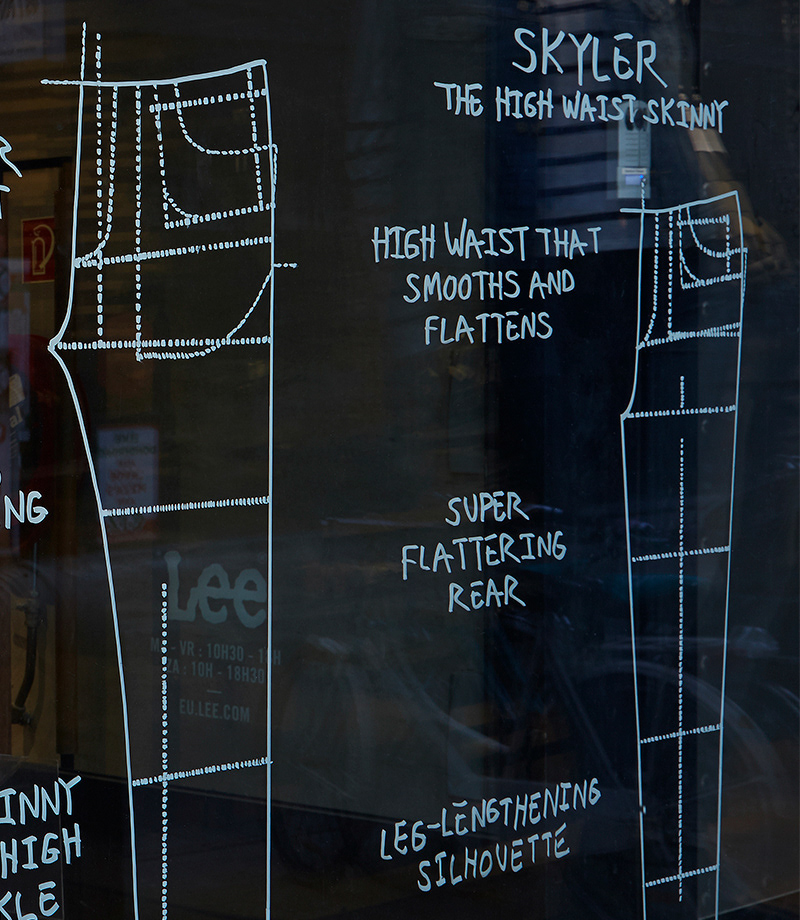 SKYLER
THE HIGH WAIST SKINNY
HIGH WAIST THAT
SMOOTHS AND
FLATTENS
NG
SUPER
FLATTERING
REAR
Lee
- VR : 10H30 -
ZA : 10H - 18H30
—
EU.LEE.COM
INNY
HIGH
KLE
LEG-LENGTHENING
SILHOVETTE